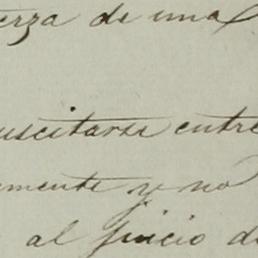 erza de una
uscitarse entre
mente y no
al juicio de